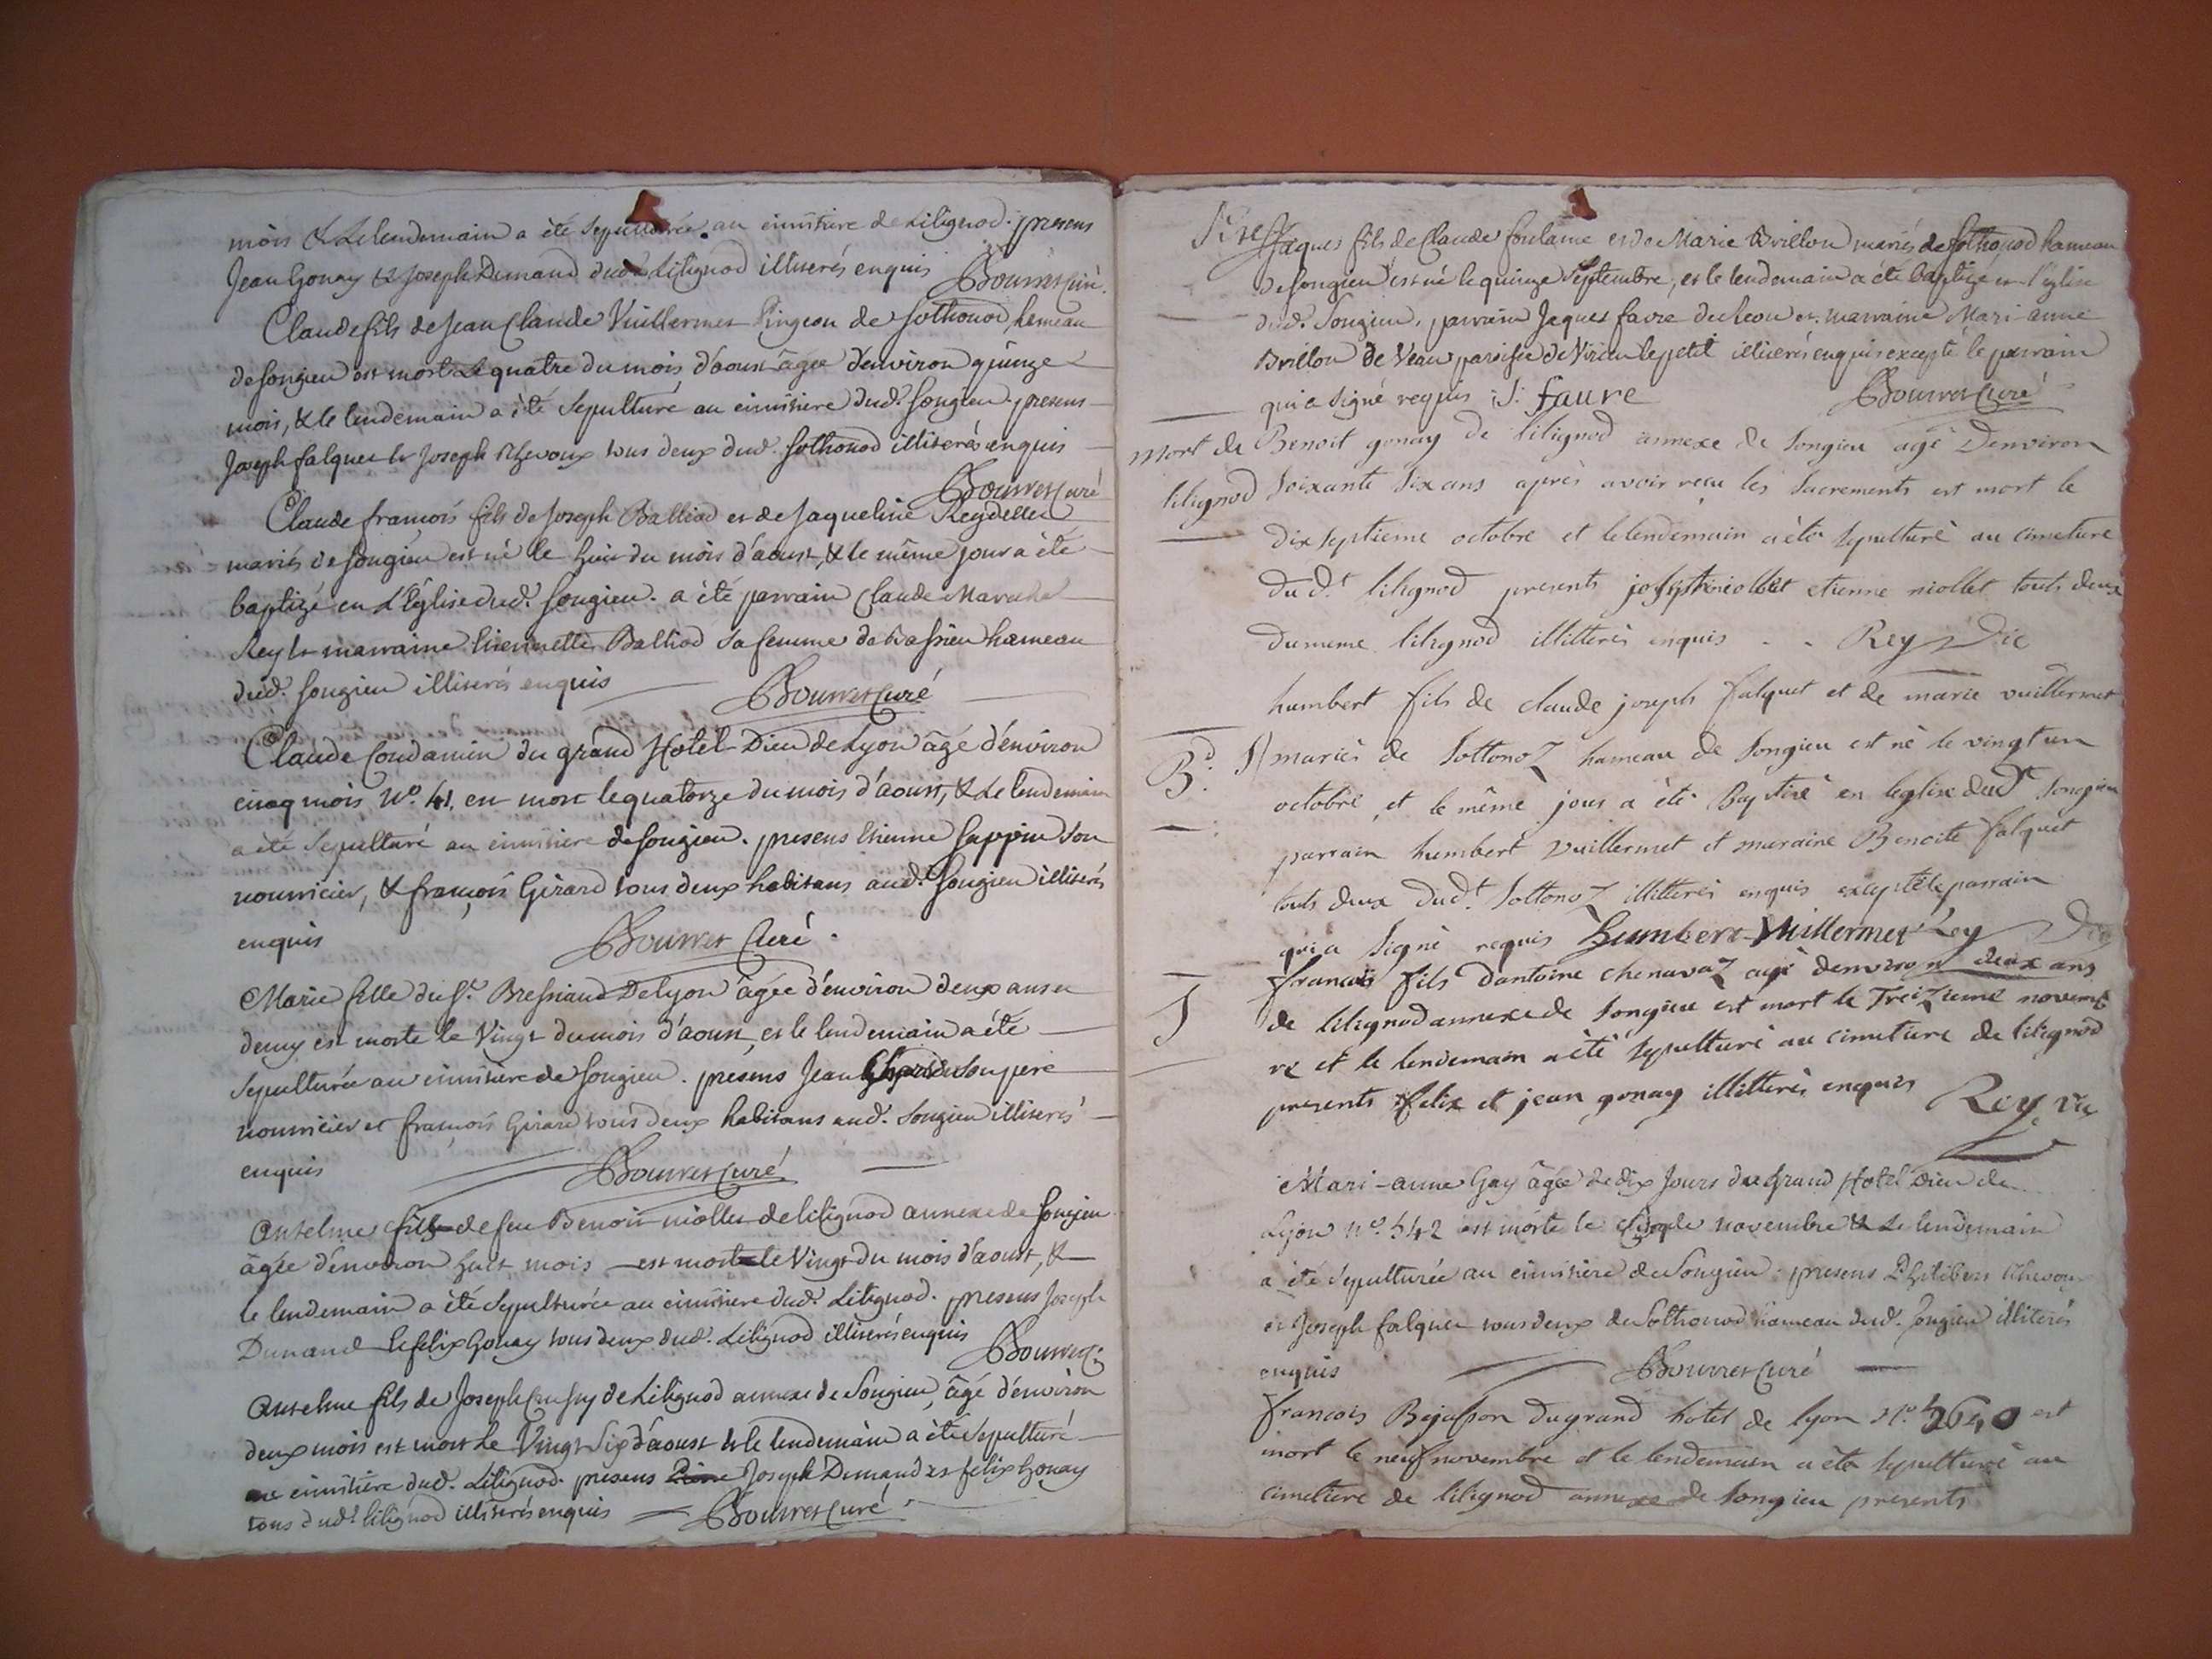 mois & Le lendemain a été sepulturée au cimitiere de Lilignod. presens
Jean Gonay & Joseph Dunand dud. Lilignod illiterés enquis Bouvret Curé.
Claude fils de Jean Claude Vuillermet Pingeon de Sothonod, hameau
de Songieu est mort Le quatre du mois d'aoust âgée d'environ quinze
mois, & le lendemain a été sepulturé au cimitiere dud. Songieu. presens
Joseph falquet & Joseph Thevoux tous deux dud. Sothonod illiterés enquis
Bouvret Curé
Claude françois fils de Joseph Balliod et de Jaqueline Reydellet
mariés de Songieu est né le huit du mois d'aoust, & le même jour a été
baptizé en L'Eglise dud. Songieu. a été parrain Claude
Rey & marraine thiennette Balliod sa femme de Bassieu hameau
dud. Songieu illiterés enquis Bouvret Curé
Claude Condamin du grand Hotel-Dieu de Lyon âgé d'environ
cinq mois N.º 41. est mort le quatorze du mois d'aoust, & Le lendemain
a été sepulturé au cimitiere de Songieu. presens Etienne Sappin son
nourricier, & françois Girard tous deux habitans aud. Songieu illiterés
enquis Bouvret Curé.
Marie fille du Sr. Bressiand De Lyon âgée d'environ deux ans et
demy est morte le Vingt du mois d'aoust, et le lendemain a été
sepulturée au cimitiere de Songieu. presens Jean son pere
nourricier et françois Girard tous deux habitans aud. Songieu illiterés
enquis Bouvret Curé
Anselme fils de feu Benoit niollet de lilignod annexe de Songieu
âgée d'environ huit mois est mort le Vingt du mois d'aoust, &
le lendemain a été sepulturée au cimitiere dud. Lilignod. presens Joseph
Dunand & felix Gonay tous deux dud. Lilignod illiterés enquis Bouvret C.
Anselme fils de Joseph de Lilignod annexe de Songieu, âgé d'environ
deux mois est mort Le Vingt Six d'aoust & le lendemain a été sepulturé
au cimitiere dud. Lilignod. presens Joseph Dunand et felix Gonay
tous dud. lilignod illiterés enquis Bouvret Curé
Jaques fils de Claude foulame et de Marie Brillon mariés de Sothonod hameau
de Songieu est né le quinze Septembre, et le lendemain a été baptizé en l'eglise
dud. Songieu. parrain Jaques favre et marraine Mari-anne
Brillon de Veau paroisse de Virieu le petit illiterés enquis excepté le parrain
qui a signé requis J. faure Bouvret Curé
mort de Benoit gonay de lilignod annexe de Songieu agé Denviron
lilignod Soixante Six ans après avoir reçu les Sacrements est mort le
dix septieme octobre et le lendemain a été sepulturé au cimetiere
dudt. lilignod presents joseph niollet etienne niollet touts deux
du meme lilignod illitterés enquis - - Rey Vic
humbert fils de claude joseph falquet et de marie vuillermet
Bd. mariés de Sottonoz hameau de Songieu est né le vingt un
octobre, et le même jour a été Baptisé en leglise dudt Songieu
parrain humbert vuillermet et maraine Benoite falquet
touts deux dudt. Sottonoz illitterés enquis excepté le parrain
qui a Signé requis Humbert Vuillermet Rey Vic
francois fils dantoine chenavaz agé denviron deux ans
de lilignod annexe de Songieu est mort le Treizieme novemb
re et le lendemain a été sepulturé au cimetiere de lilignod
presents felix et jean gonay illitterés enquis Rey Vic
Mari-anne Gay âgée de dix Jours du grand Hotel Dieu de
Lyon N.º 542 est morte le novembre & Le lendemain
a été sepulturée au cimitiere de Songieu. presens Philibert Thevoux
et Joseph falquet tous deux de Sothonod hameau dud. Songieu illiterés
enquis Bouvret Curé
francois Bejasson du grand hotel de lyon N.º 2640 est
mort le neuf novembre et le lendemain a été sepulturé au
cimetiere de lilignod annexe de Songieu presents